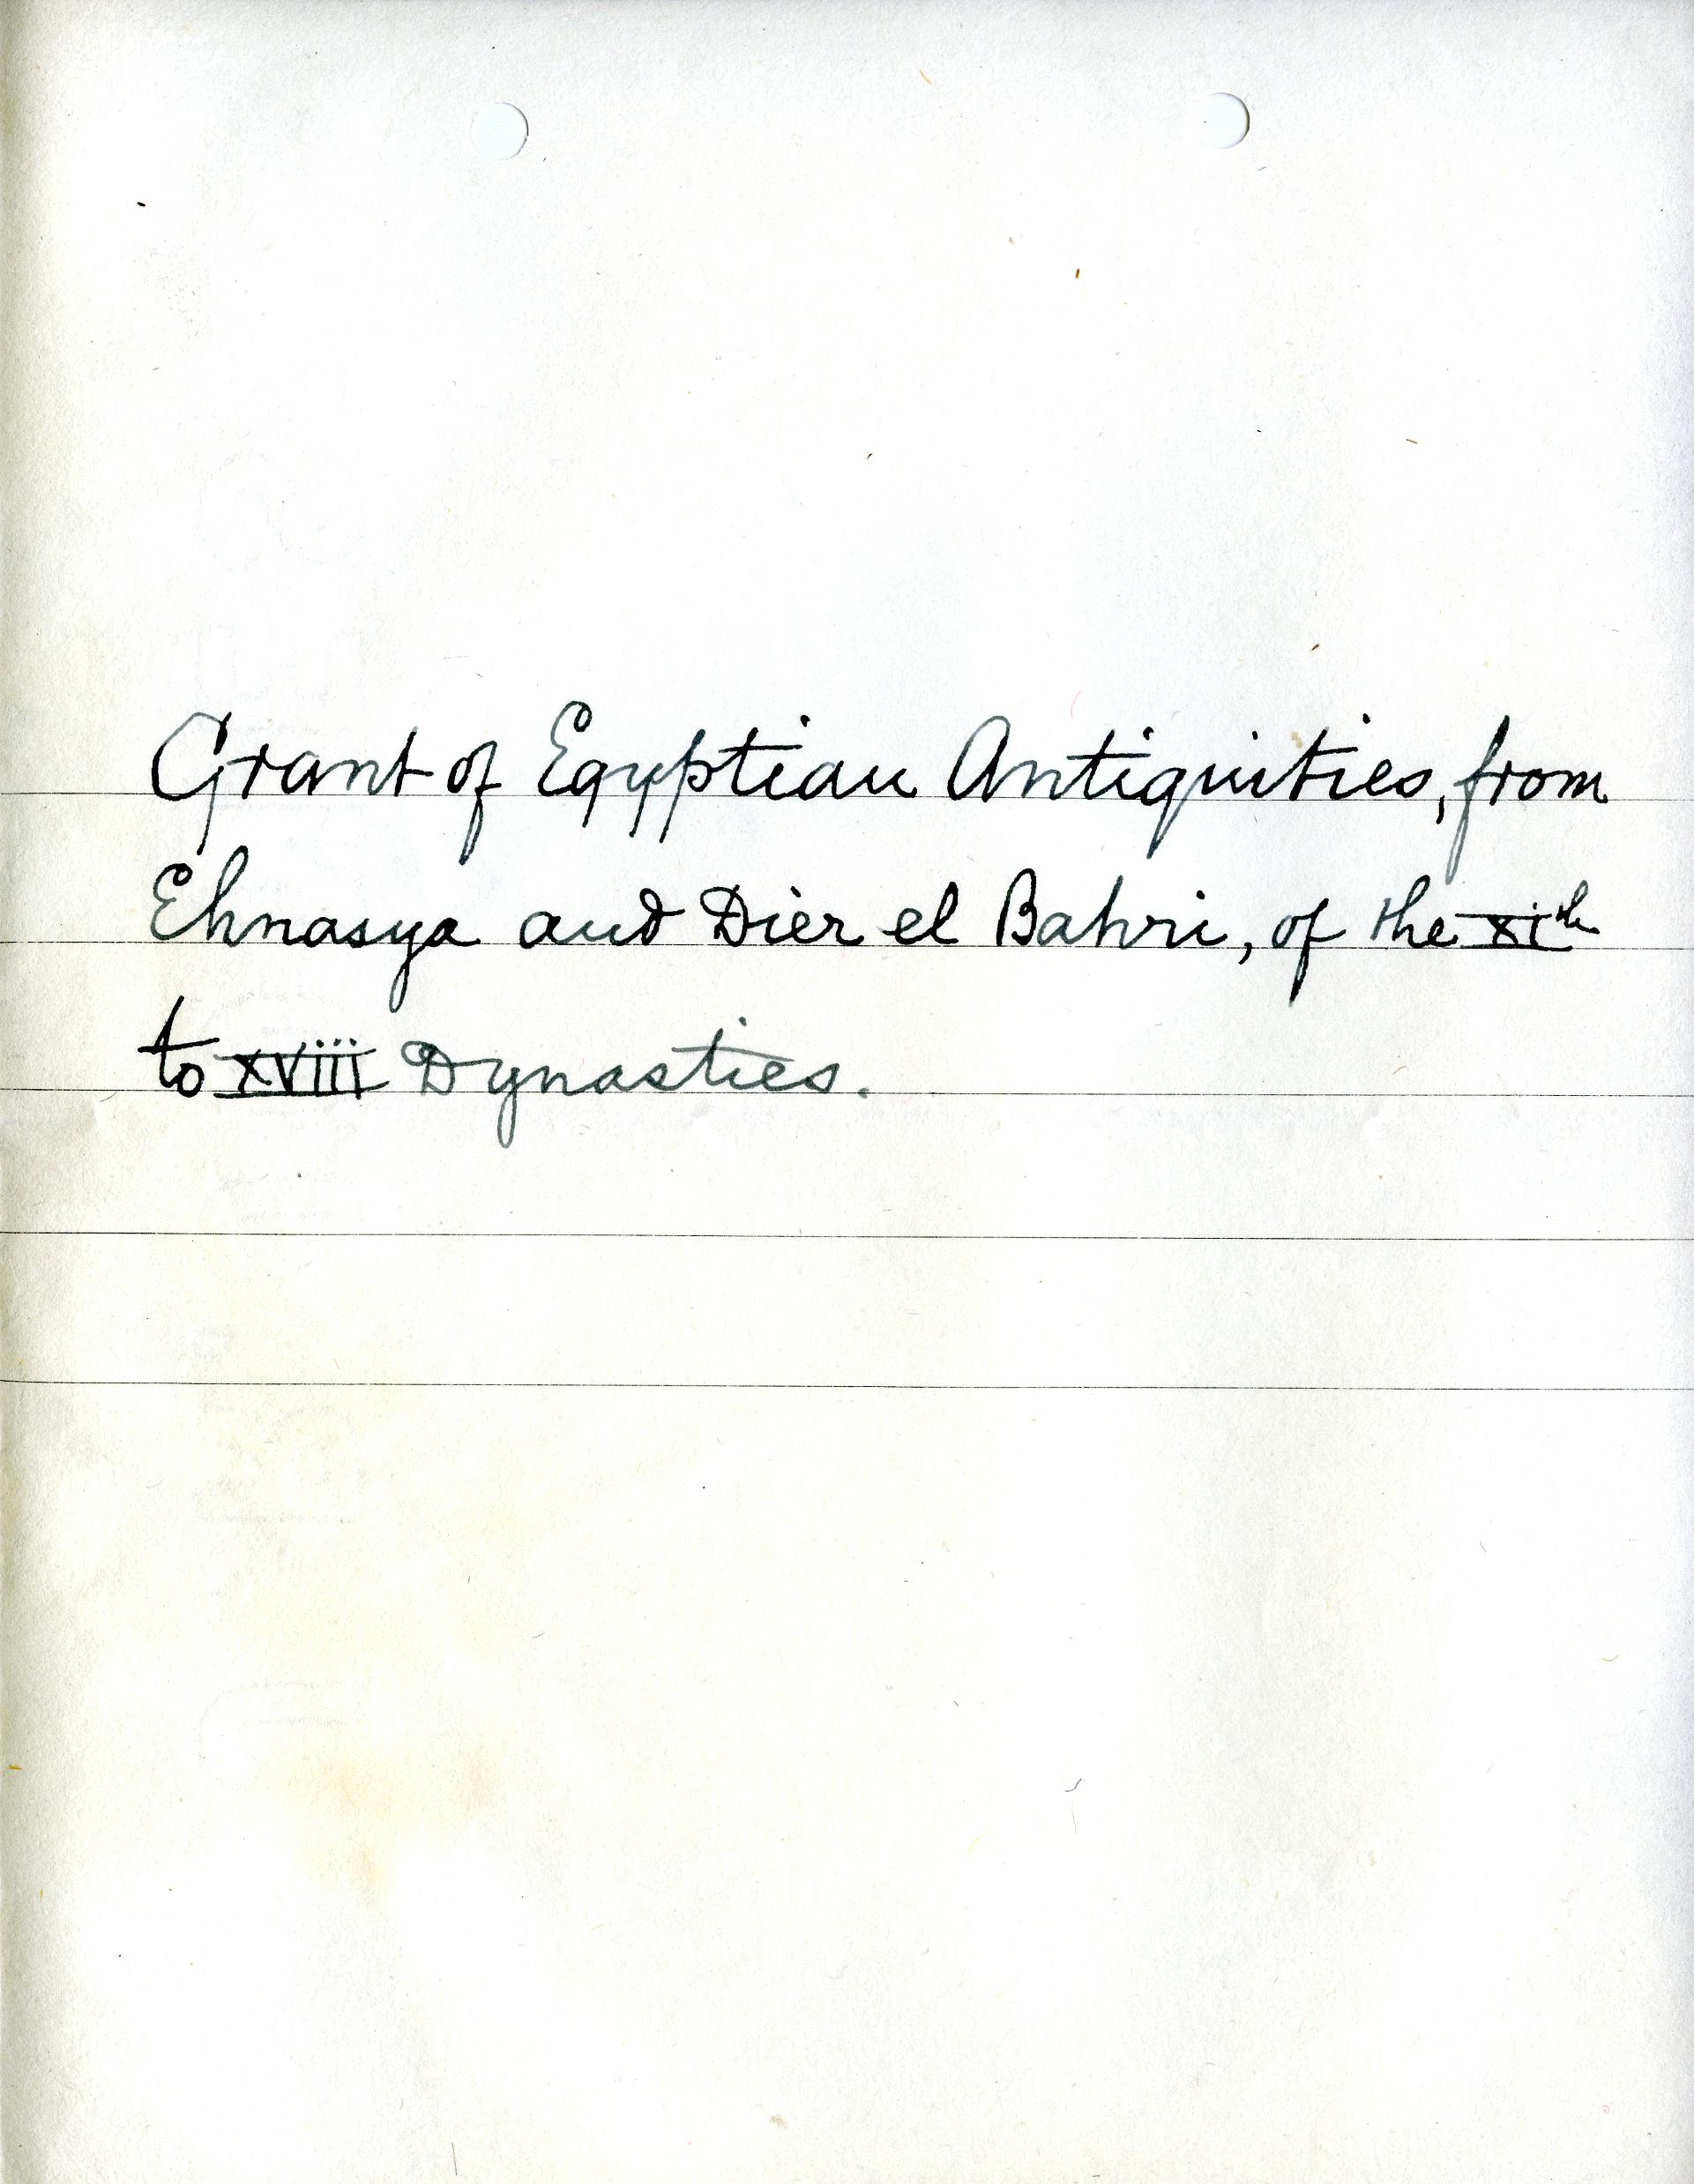 Grant of Egyptian Antiquities, from
Ehnasya and Dier el Bahri, of the XIth
to XVIII Dynasties.